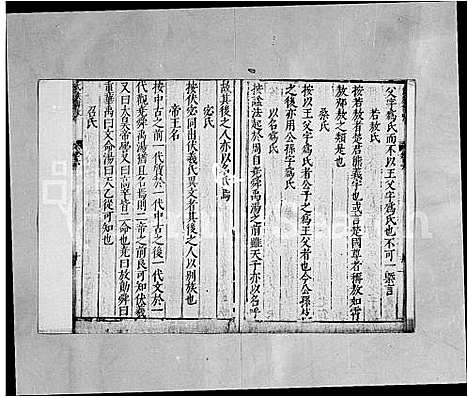 父字爲氏而不以王父字爲氏也不可槩言
若敖氏
按若敖者楚君熊義字也或言楚國尊者稱敖如霄
敖郟敖之類是也
桑氏
按以王父字爲氏者公子之爲王父者也今公孫枝
之後亦用公孫字爲氏
以名爲氏
按謚法起於周自堯舜禹湯之前雖天子亦以名呼
故其後之人亦以名爲氏焉
宓氏
按伏宓同出伏羲氏異文者其後之人以別族也
帝王名
按中古之前一代質於一代中古之後一代文於一
代觀堯舜禹湯猶且名焉則二帝之前良可知伏羲
又曰大昊帝嚳又曰高辛皆二命也堯曰放勛舜曰
重華禹曰文命湯曰天乙後可知也
召氏